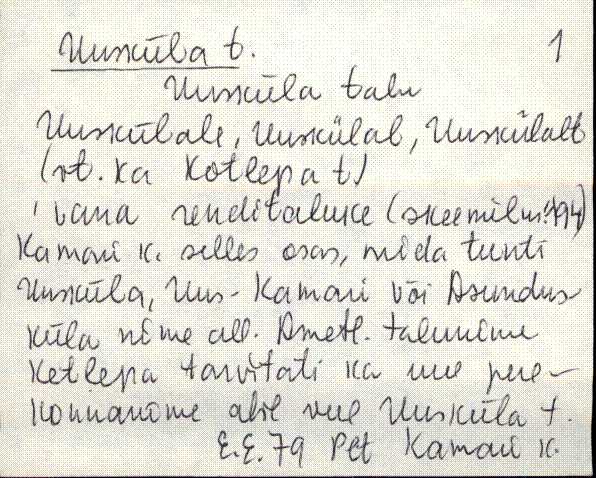 Uusküla t. 1
Uusküla talu
Uuskülale, Uuskülal, Uuskülalt
(vt. ka Kotlepa t)
' vana renditaluke (skeemil nr. 194)
Kamari k. selles osas, mida tunti
Uusküla, Uus-Kamari või Asundus-
küla nime all. Ametl. talunime
Ketlepa tarvitati ka uue pere-
konnanime abil veel Uusküla t.
E.E. 79 Plt Kamari k.